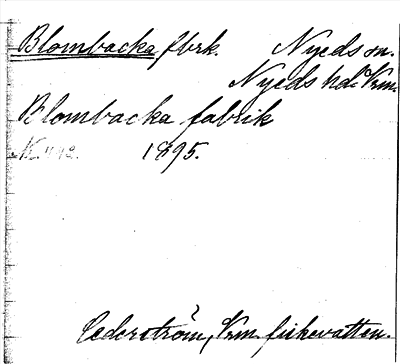 Blombacka fbrk. Nyeds sn.
Nyeds hd. Vrm.
Blombacka fabrik
1895.
Cederström, Vrm. fiskevatten.